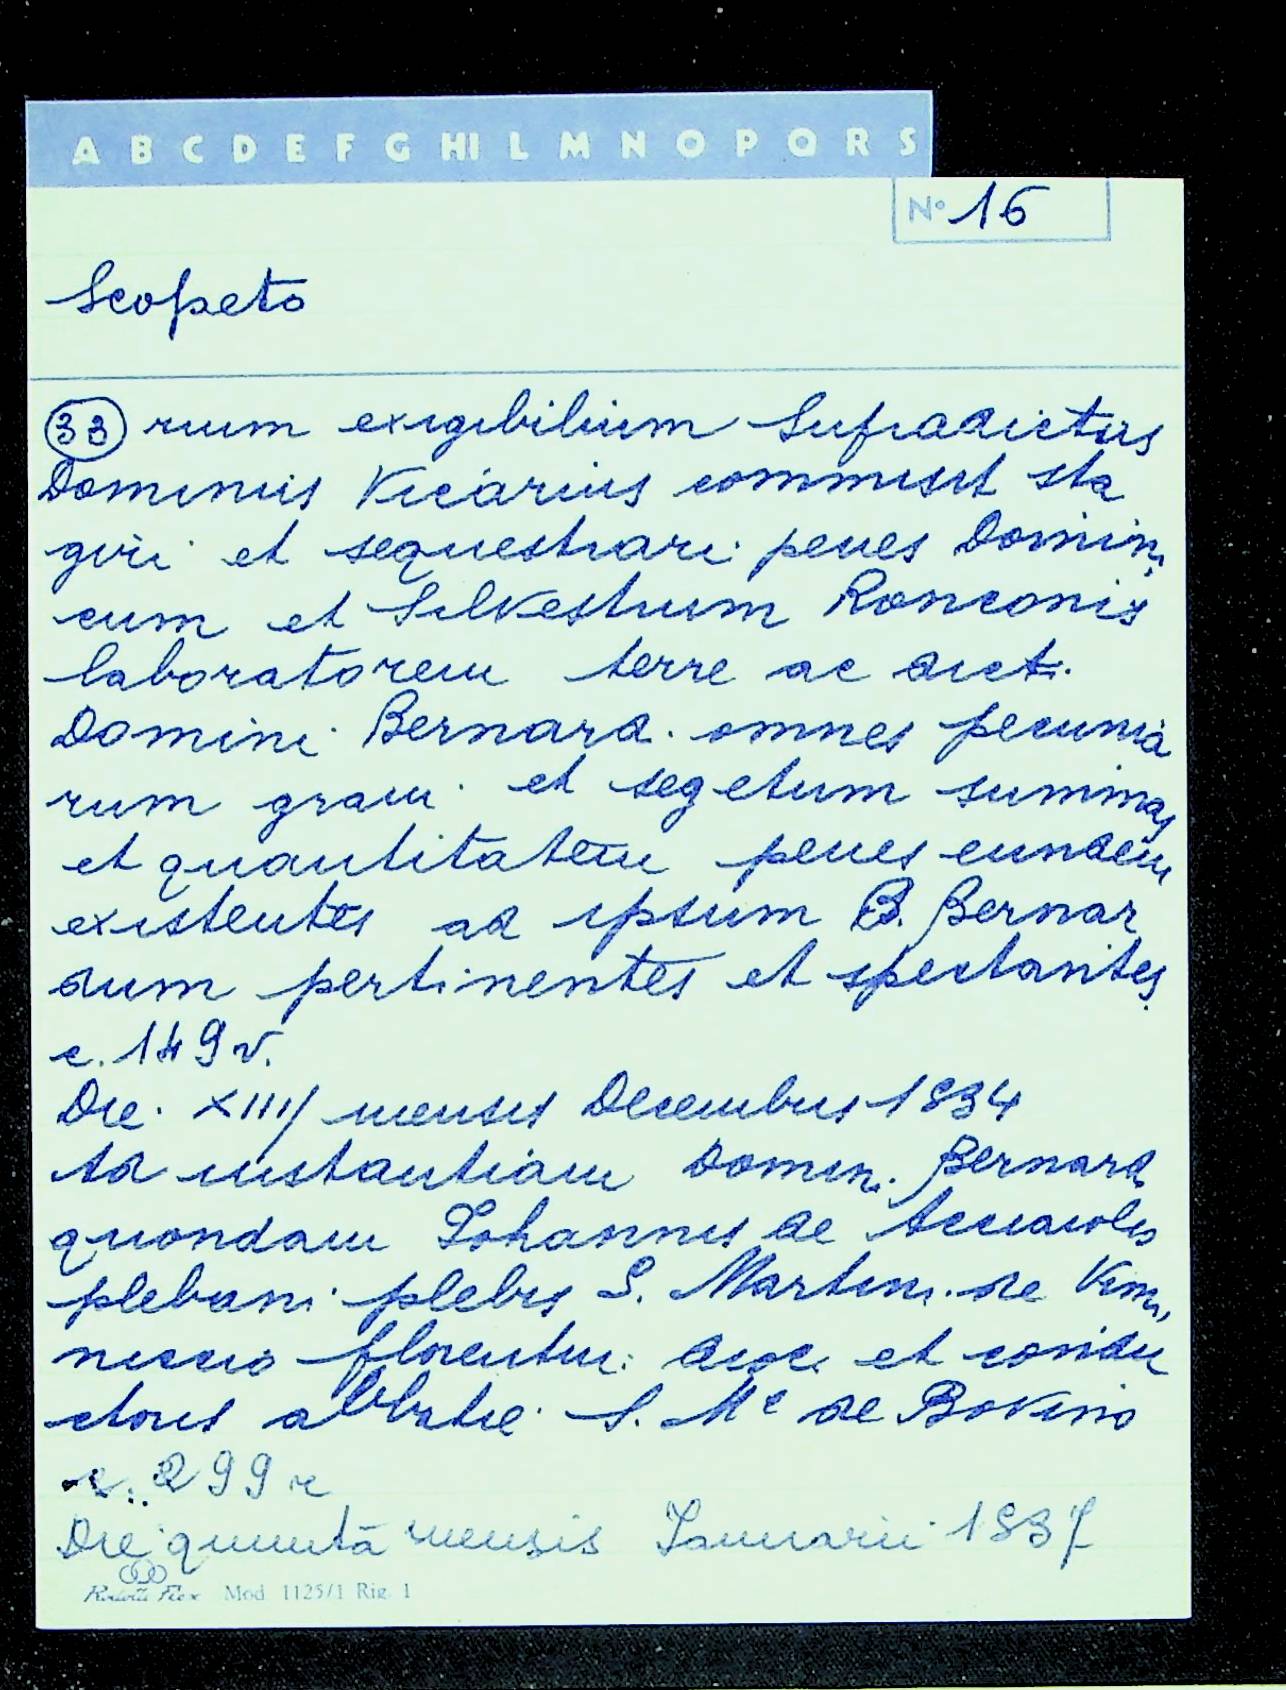 A B C D E F G HI L M N O P Q R S
N° 16
Scopeto
33 rium exigibilium Supradictus
Dominus Vicarius commisit sta
giri et sequestrari penes Domin,
cum et Silvestrum Ronconis
laboratorem terre ac dict.
Domini Bernard. omnes pecunia
rum grani et segetum summas
et quantitatem penes eundem
existentes ad ipsum B. Bernar
dum pertinentes et spectantes
c. 149 v.
Die XIII/ mensis Decembris 1534
Ad instantiam Domin. Bernard.
quondam Iohannis de Acciaiolis
plebani plebis S. Martini de
florentin. dioc. et condu
ctoris abbatie S. Me de Bovino
c. 299 r
Die quinta mensis Ianuarii 1537
Mod. 1125/1 Rig. 1